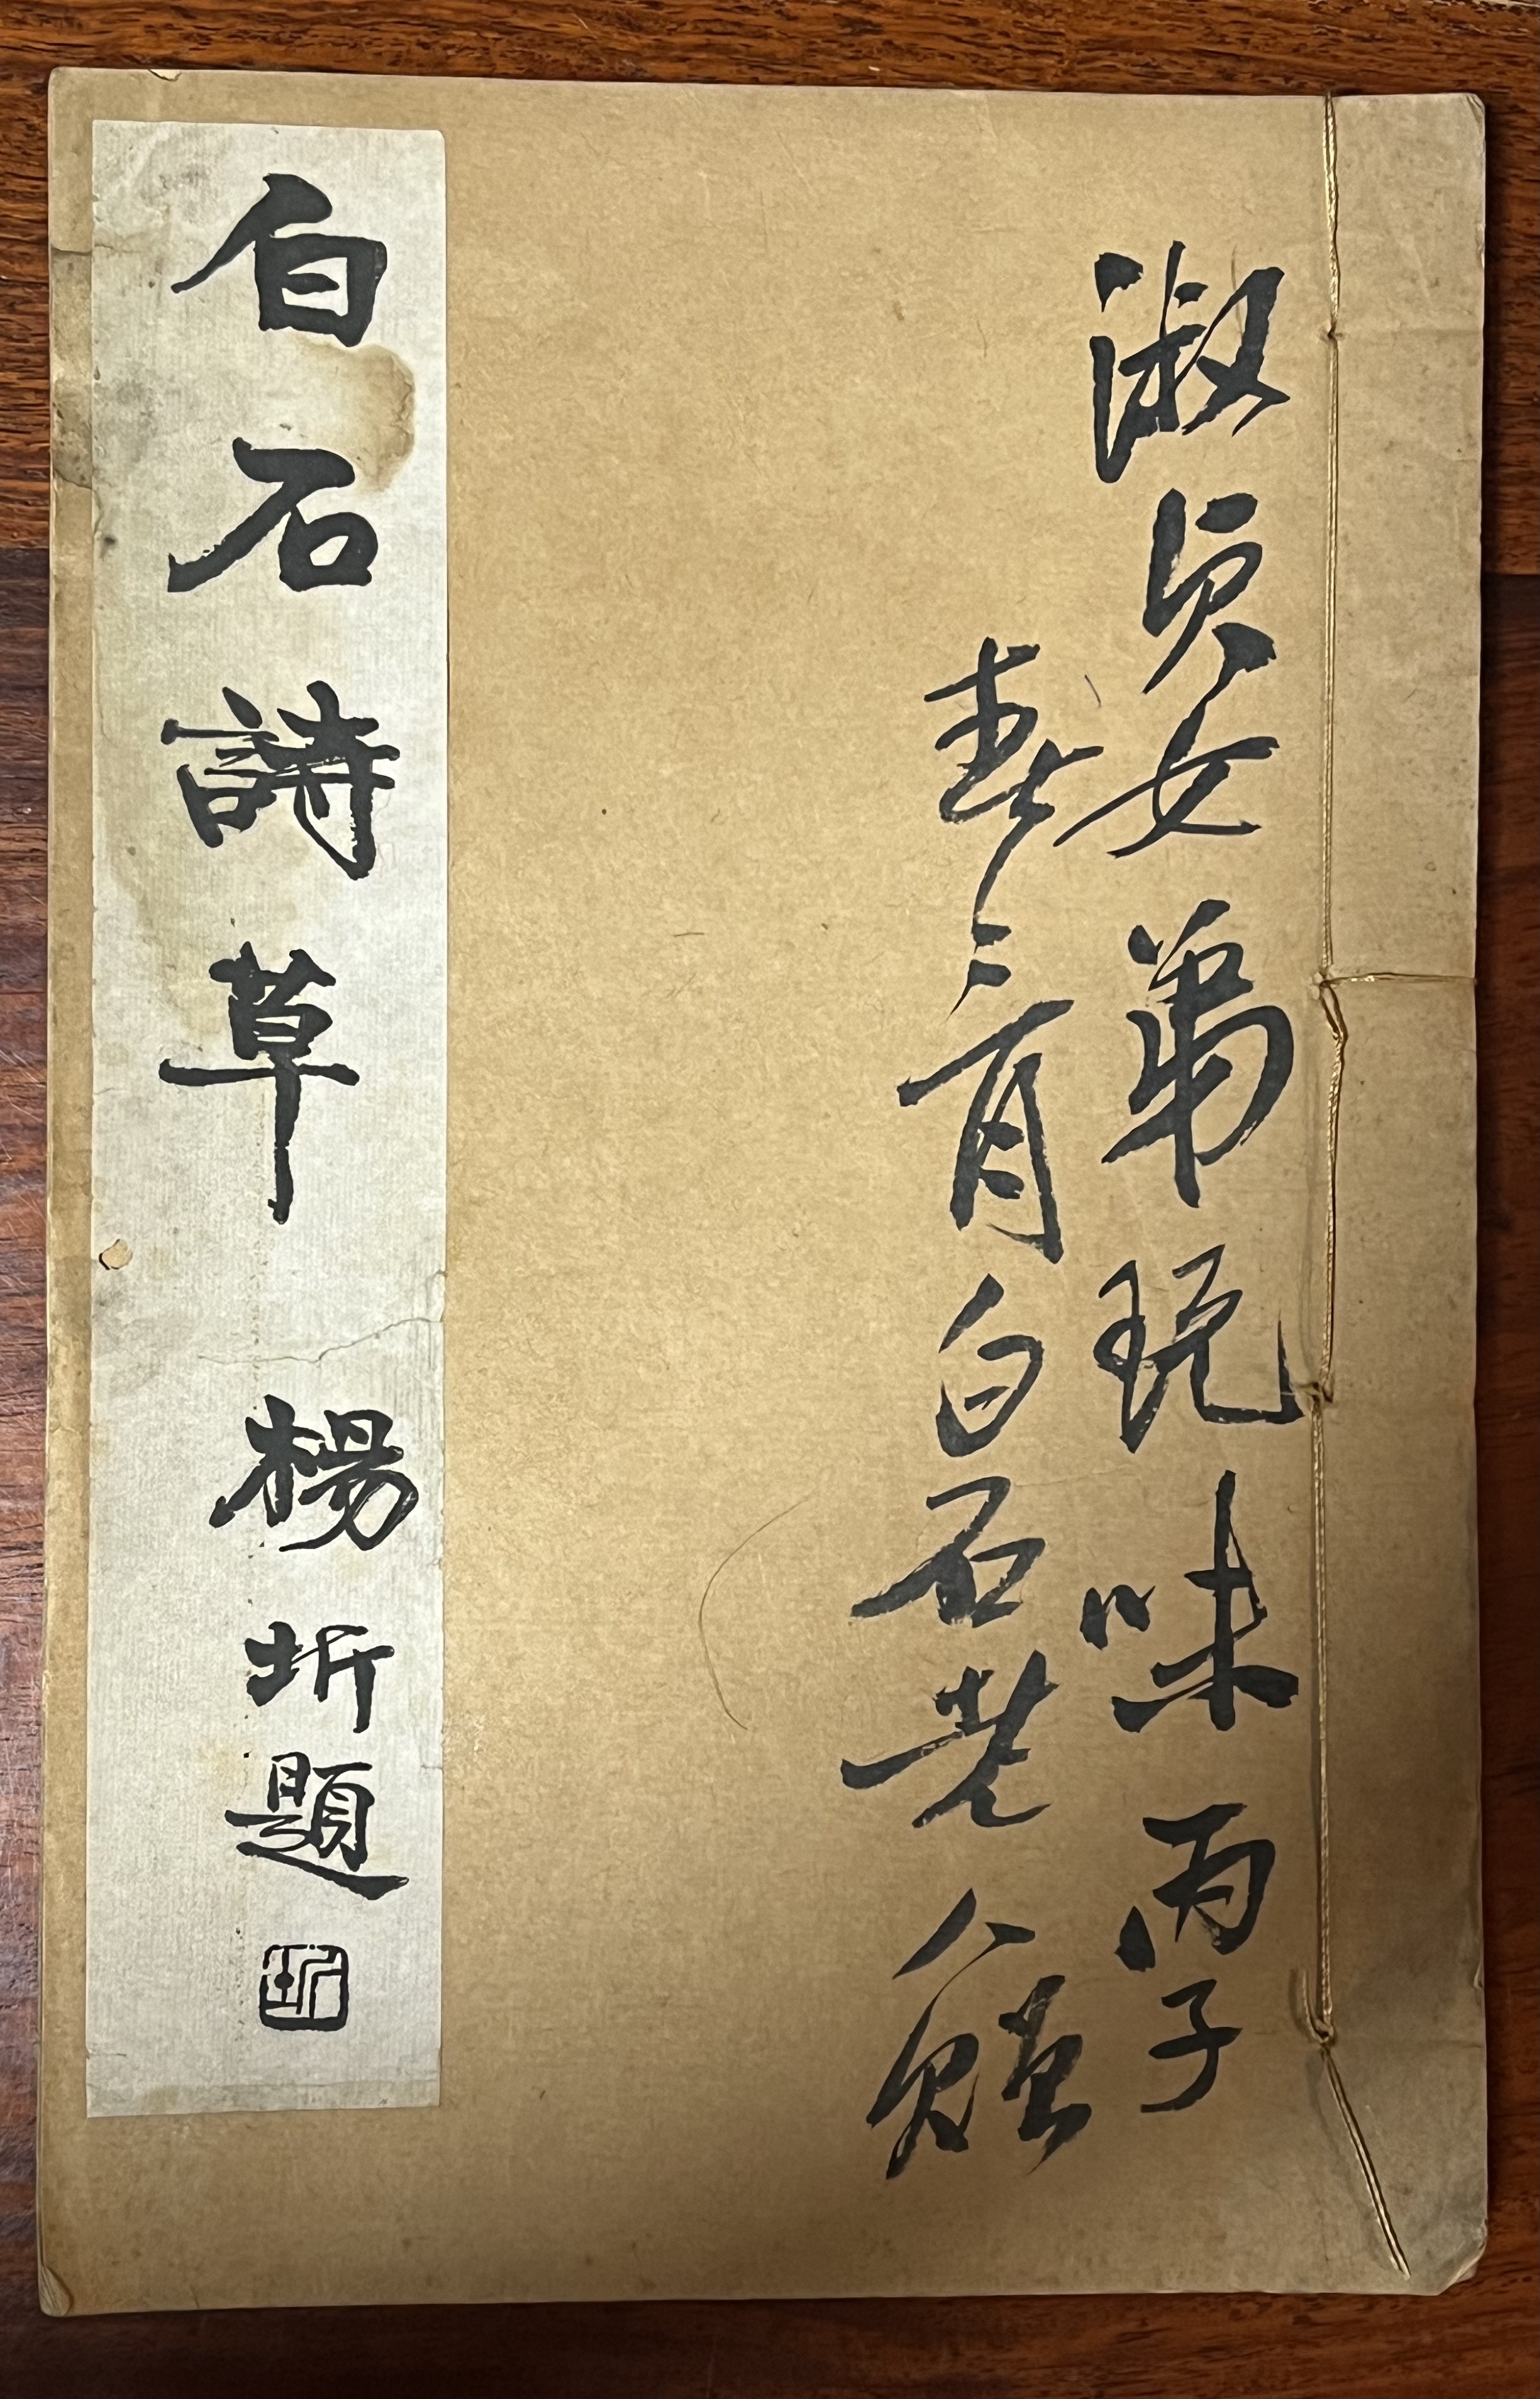 淑貞女弟玩味丙子
春三月白石老人贈
白石詩草 楊圻題
圻